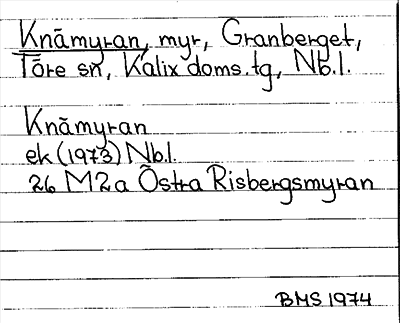 Knāmyran, myr, Granberget,
Töre sn, Kalix doms.tg, Nb.l.
Knāmyran
ek (1973) Nb.l.
26 M2a Östra Risbergsmyran
BMS 1974